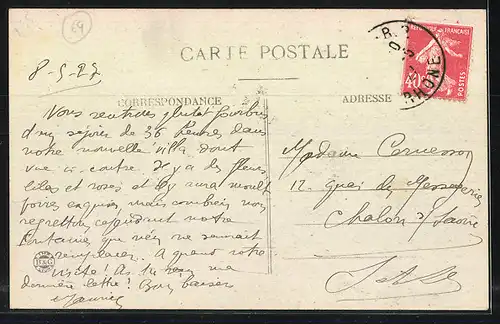 69
CARTE POSTALE
8-5-27
CORRESPONDANCE
ADRESSE
RHONE
REPUBLIQUE FRANÇAISE
40c
POSTES
Nous rentrons plutôt fourbus
d'un séjour de 36 heures, dans
notre nouvelle villa dont
vue ci-contre. Il y a des fleurs
lilas et roses et il y aura
foires exquises, mais combien nous
regrettons cependant notre
Fontaine que rien ne saurait
remplacer. A quand votre
visite! As tu reçu ma
dernière lettre! Bons baisers
Maurice
Madame
12, quai des Messageries
Chalon s/ Saône
S. et L.
B&G